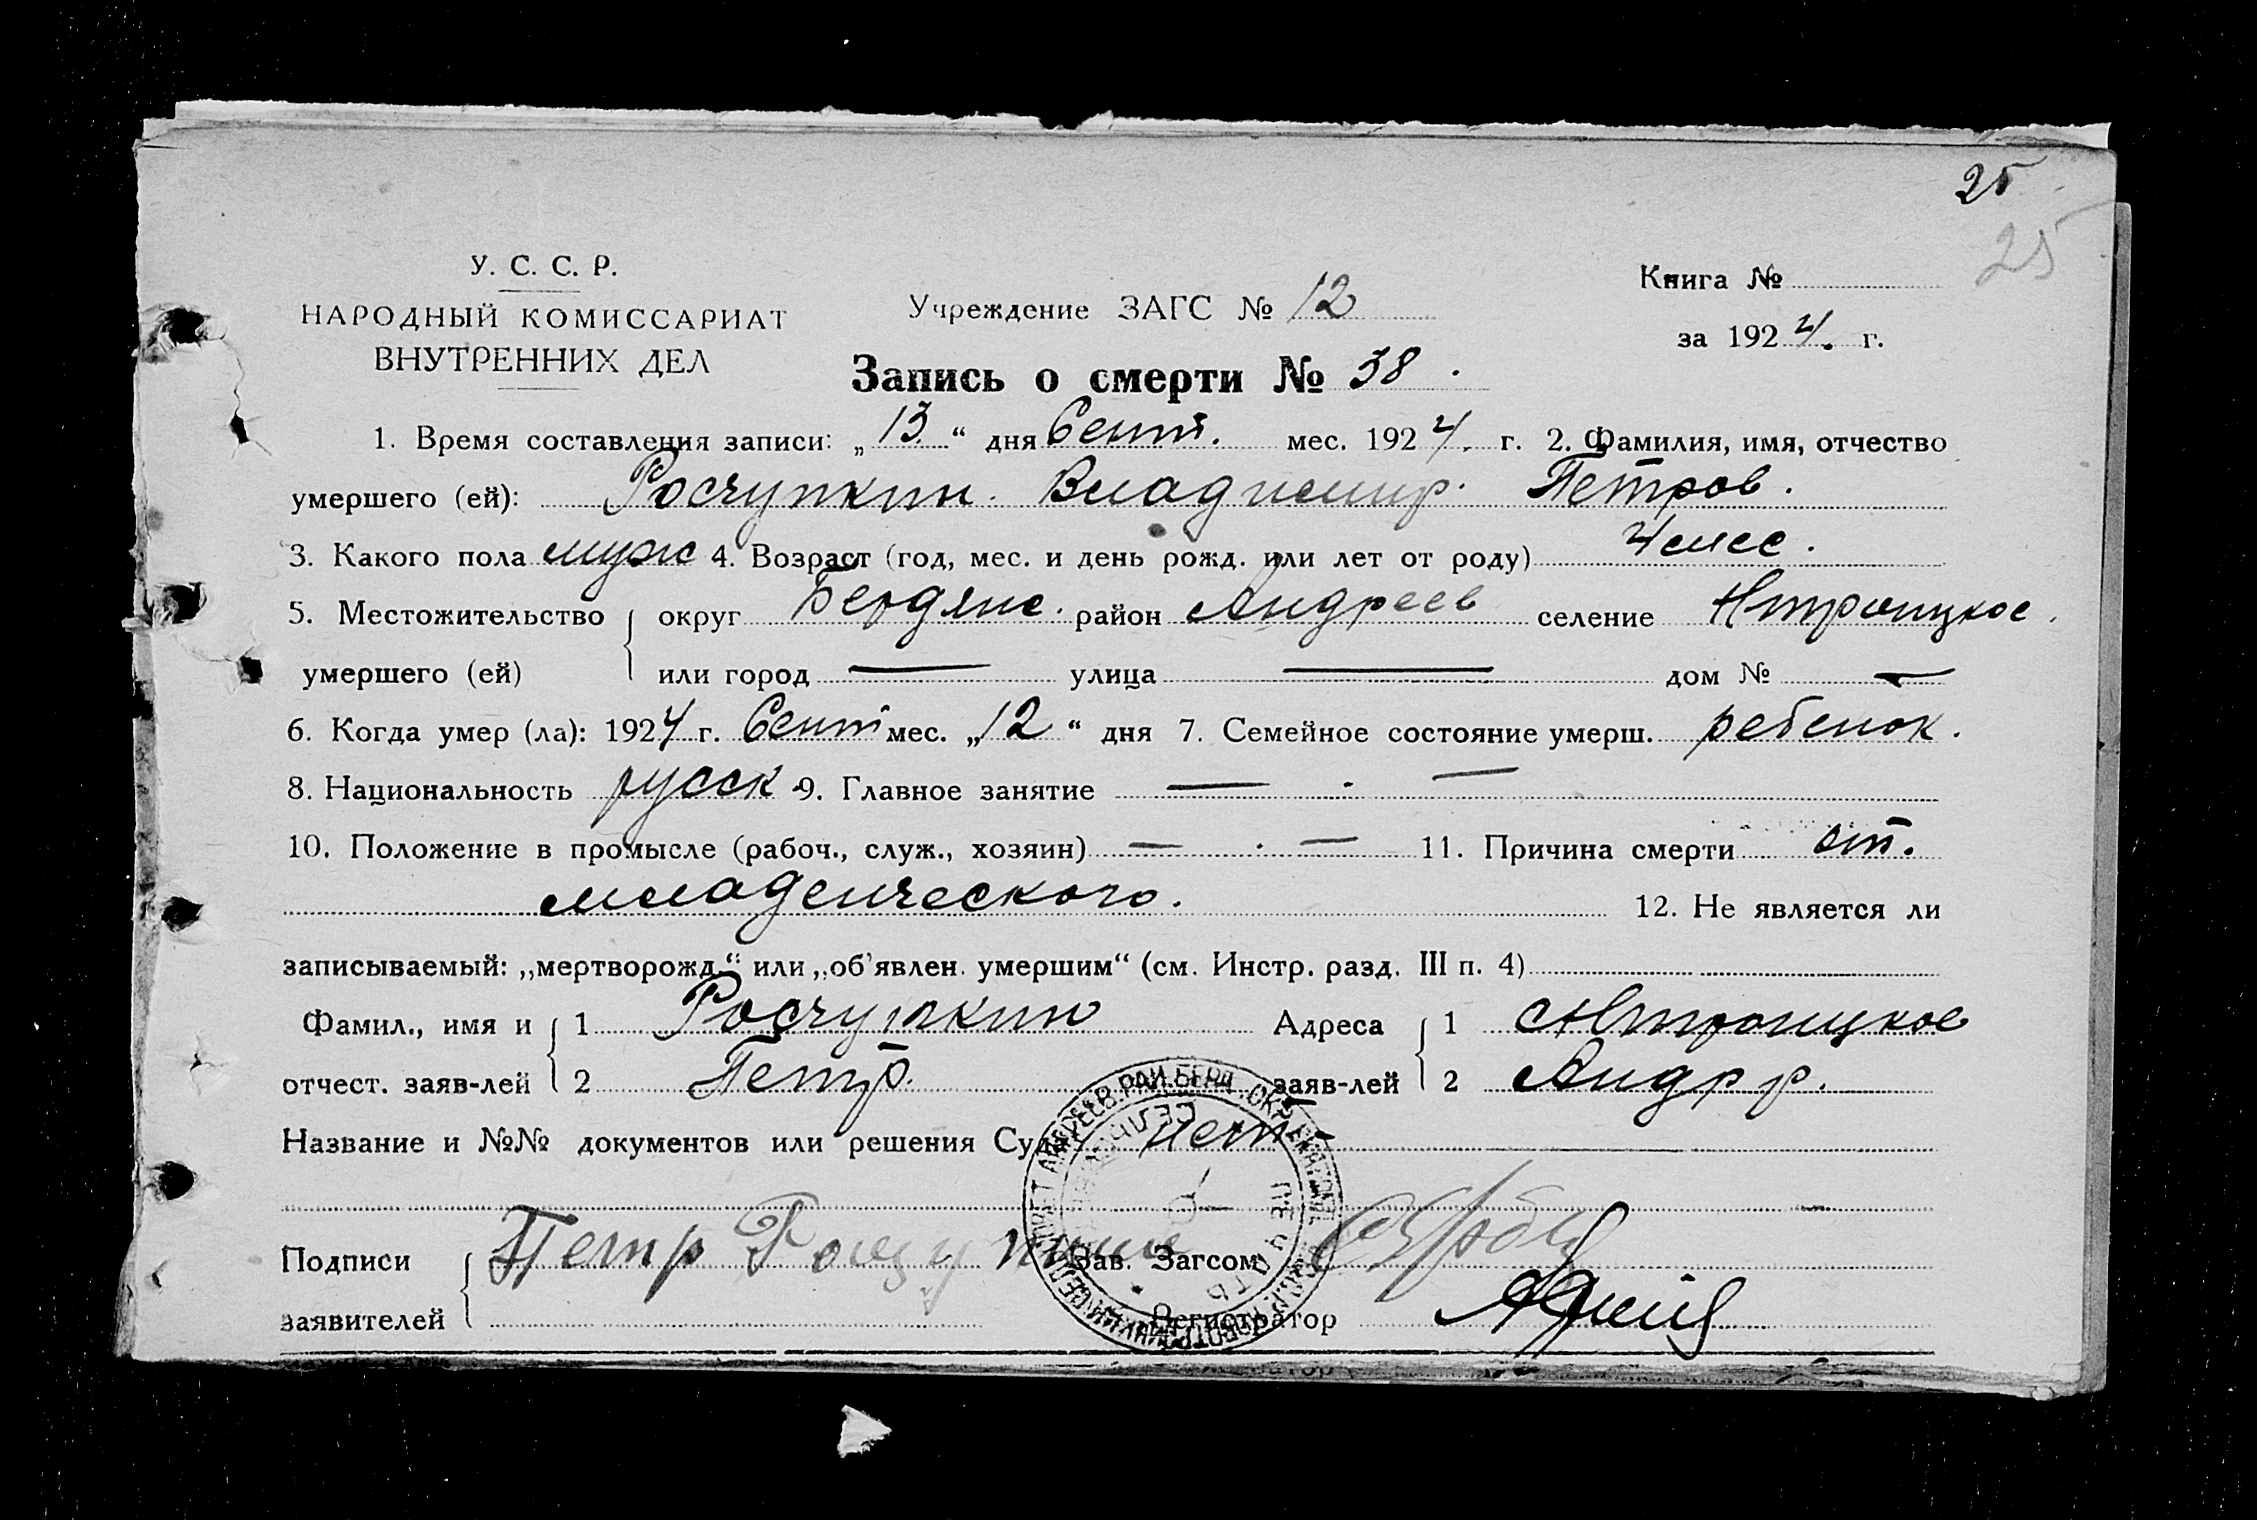 25
25
У. С. С. Р.
НАРОДНЫЙ КОМИССАРИАТ
ВНУТРЕННИХ ДЕЛ
Учреждение ЗАГС № 12
Книга №
за 1924. г.
Запись о смерти № 38.
1. Время составления записи: „13“ дня Сент. мес. 1924. г. 2. Фамилия, имя, отчество
умершего (ей): Росчупкин. Владимир. Петров.
3. Какого пола муж 4. Возраст (год, мес. и день рожд. или лет от роду) 4 мес.
5. Местожительство округ Бердянс. район Андреев селение Нтроицкое.
умершего (ей) или город — улица — дом № —
6. Когда умер (ла): 1924 г. Сент мес. „12“ дня 7. Семейное состояние умерш. ребенок.
8. Национальность русск 9. Главное занятие — . —
10. Положение в промысле (рабоч., служ., хозяин) — . — 11. Причина смерти от.
младенческого. 12. Не является ли
записываемый: „мертворожд.“ или „об'явлен. умершим“ (см. Инстр. разд. III п. 4)
Фамил., имя и 1 Росчупкин Адреса 1 с Нтроицкое
отчест. заяв-лей 2 Петр. заяв-лей 2 Андр р.
Название и №№ документов или решения Суда нет
Подписи Петр Рощупкин Зав. Загсом
заявителей Регистратор